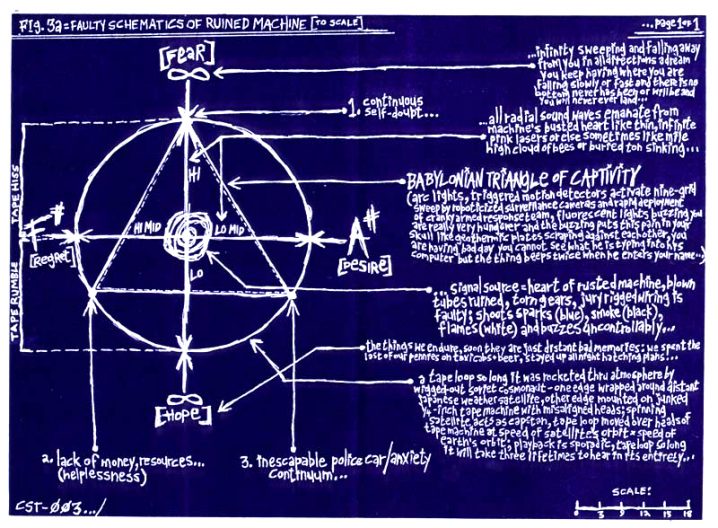 FIG. 3a = FAULTY SCHEMATICS OF RUINED MACHINE [TO SCALE]
...page 1 of 1
[FEAR]
...infinity sweeping and falling away
from you in all directions a dream
you keep having where you are
falling slowly or fast and there is no
bottom never has been or will be and
you will never ever land...
1. continuous
self-doubt...
...all radial sound waves emanate from
machine's busted heart like thin, infinite
pink lasers or else sometimes like mile
high cloud of bees or buried ton sinking...
BABYLONIAN TRIANGLE OF CAPTIVITY
(arc lights, triggered motion detectors activate nine-grid
sweep by roboticized surveillance cameras and rapid deployment
of cranky armed response team, fluorescent lights buzzing you
are really very hundred and the buzzing puts this pain in your
skull like geothermic plates scraping against each other, you
are having a bad day you cannot see what he is typing into his
computer but the thing beeps twice when he enters your name...)
TAPE HISS
TAPE RUMBLE
HI
HI MID
LO MID
LO
F#
[REGRET]
A#
[DESIRE]
...signal source = heart of rusted machine, blown
tubes ruined, torn gears, jury rigged wiring is
faulty; shoots sparks (blue), smoke (black),
flames (white) and buzzes uncontrollably...
the things we endure, soon they are just distant bad memories; we spent the
last of our pennies on taxicabs + beer, stayed up all night hatching plans!...
[HOPE]
a tape loop so long it was rocketed thru atmosphere by
wigged-out soviet cosmonaut - one edge wrapped around distant
japanese weather satellite, other edge mounted on junked
1/4-inch tape machine with misaligned heads; spinning
satellite acts as capstan, tape loop moved over heads of
tape machine at speed of satellite's orbit = speed of
earth's orbit; playback is sporadic, tape loop so long
it will take three lifetimes to hear in its entirety...
2. lack of money, resources...
(helplessness)
3. inescapable police car/anxiety
continuum...
CST-003.../
SCALE:
0 3 9 12 15 18